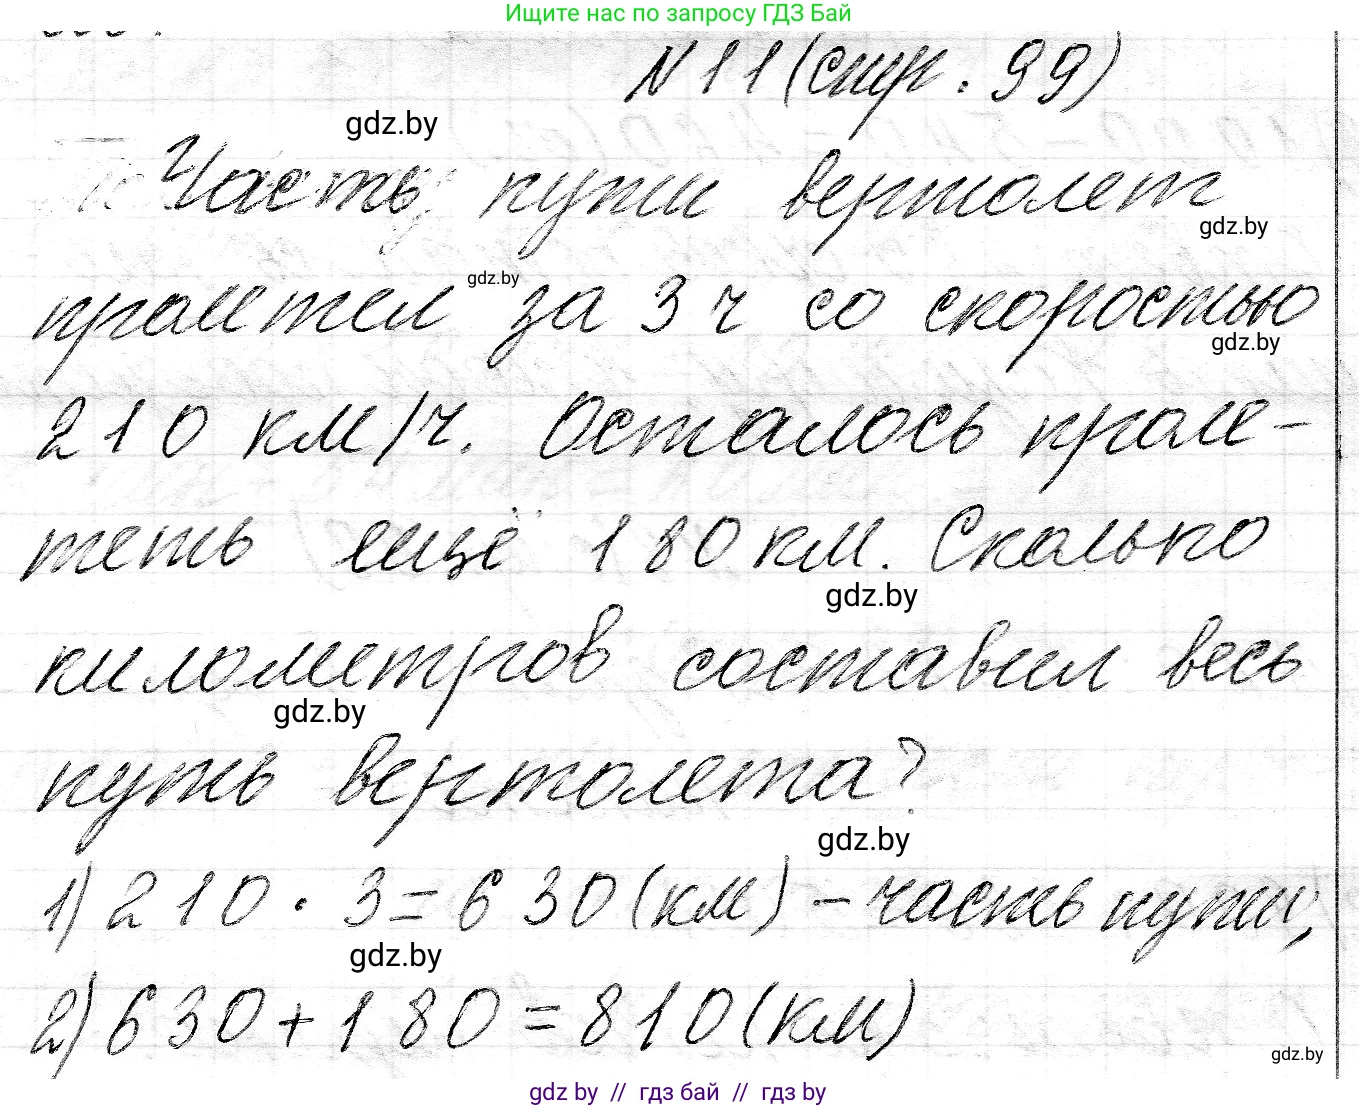 Ищите нас по запросу ГДЗ Бай
№11 (стр. 99)
gdz.by
Часть пути вертолет
gdz.by
gdz.by
пролетел за 3 ч со скоростью
gdz.by
210 км/ч. Осталось проле-
теть ещё 180 км. Сколько
gdz.by
километров составил весь
gdz.by
путь вертолета?
gdz.by
1) 210 · 3 = 630 (км) - часть пути;
gdz.by
2) 630 + 180 = 810 (км)
gdz.by
gdz by // гдз бай // гдз by